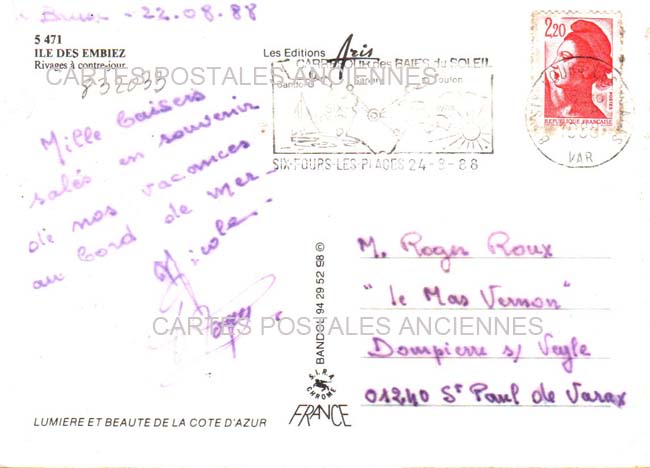 Brusc - 22.08.88
5 471
ILE DES EMBIEZ
Rivages à contre-jour
832035
Mille baisers
salés en souvenir
de nos vacances
au bord de mer -
Nicole
Les Editions Aris
CARREFOUR des BAIES du SOLEIL
Bandol
Sanary
Toulon
SIX-FOURS-LES-PLAGES 24-8-88
2,20
REPUBLIQUE FRANCAISE
POSTES
VAR
CARTES POSTALES ANCIENNES
M. Roger Roux
"le Mas Vernon"
Dompierre s/ Veyle
01240 St Paul de Varax
CARTES POSTALES ANCIENNES
BANDOL 94 29 52 98 ©
S.I.R.A.
CHROME
FRANCE
LUMIERE ET BEAUTE DE LA COTE D'AZUR